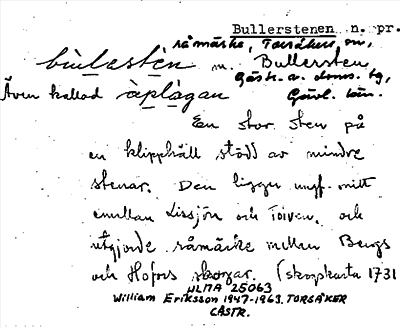 Bullerstenen n. pr.
råmärke, Torsåkers sn,
bùlæstèn m. Bullersten,
Gästr. ö. doms. bg,
Även kallad àplàgan Gävl. län.
En stor sten på
en klipphäll stödd av mindre
stenar. Den ligger ungf. mitt
emellan Lissjön och Toiven, och
utgjorde råmärke mellan Bergs
och Hofors skogar. (skogskarta 1731
ULMA 25063
William Eriksson 1947-1963. TORSÅKER
GÄSTR.